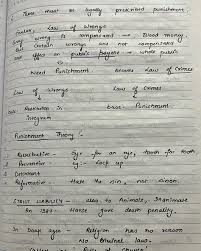 There must be legally prescribed punishment
Law of Wrongs
wrong is compensated - Blood money.
Certain wrongs are not compensated
effect on public - whole public
Need Punishment became Law of Crimes
Law of Wrongs Law of Crimes
Punishment
Program
Punishment Theory :-
Retributive - Eye for an eye, tooth for tooth
Preventive - eg:- Lock up
Deterrent
Reformative - Hate the sin, not sinner.
STRICT LIABILITY - also to Animals, Inanimate
In Horse gave death penalty.
In Deep ages - Religion has no reason
No Criminal law.